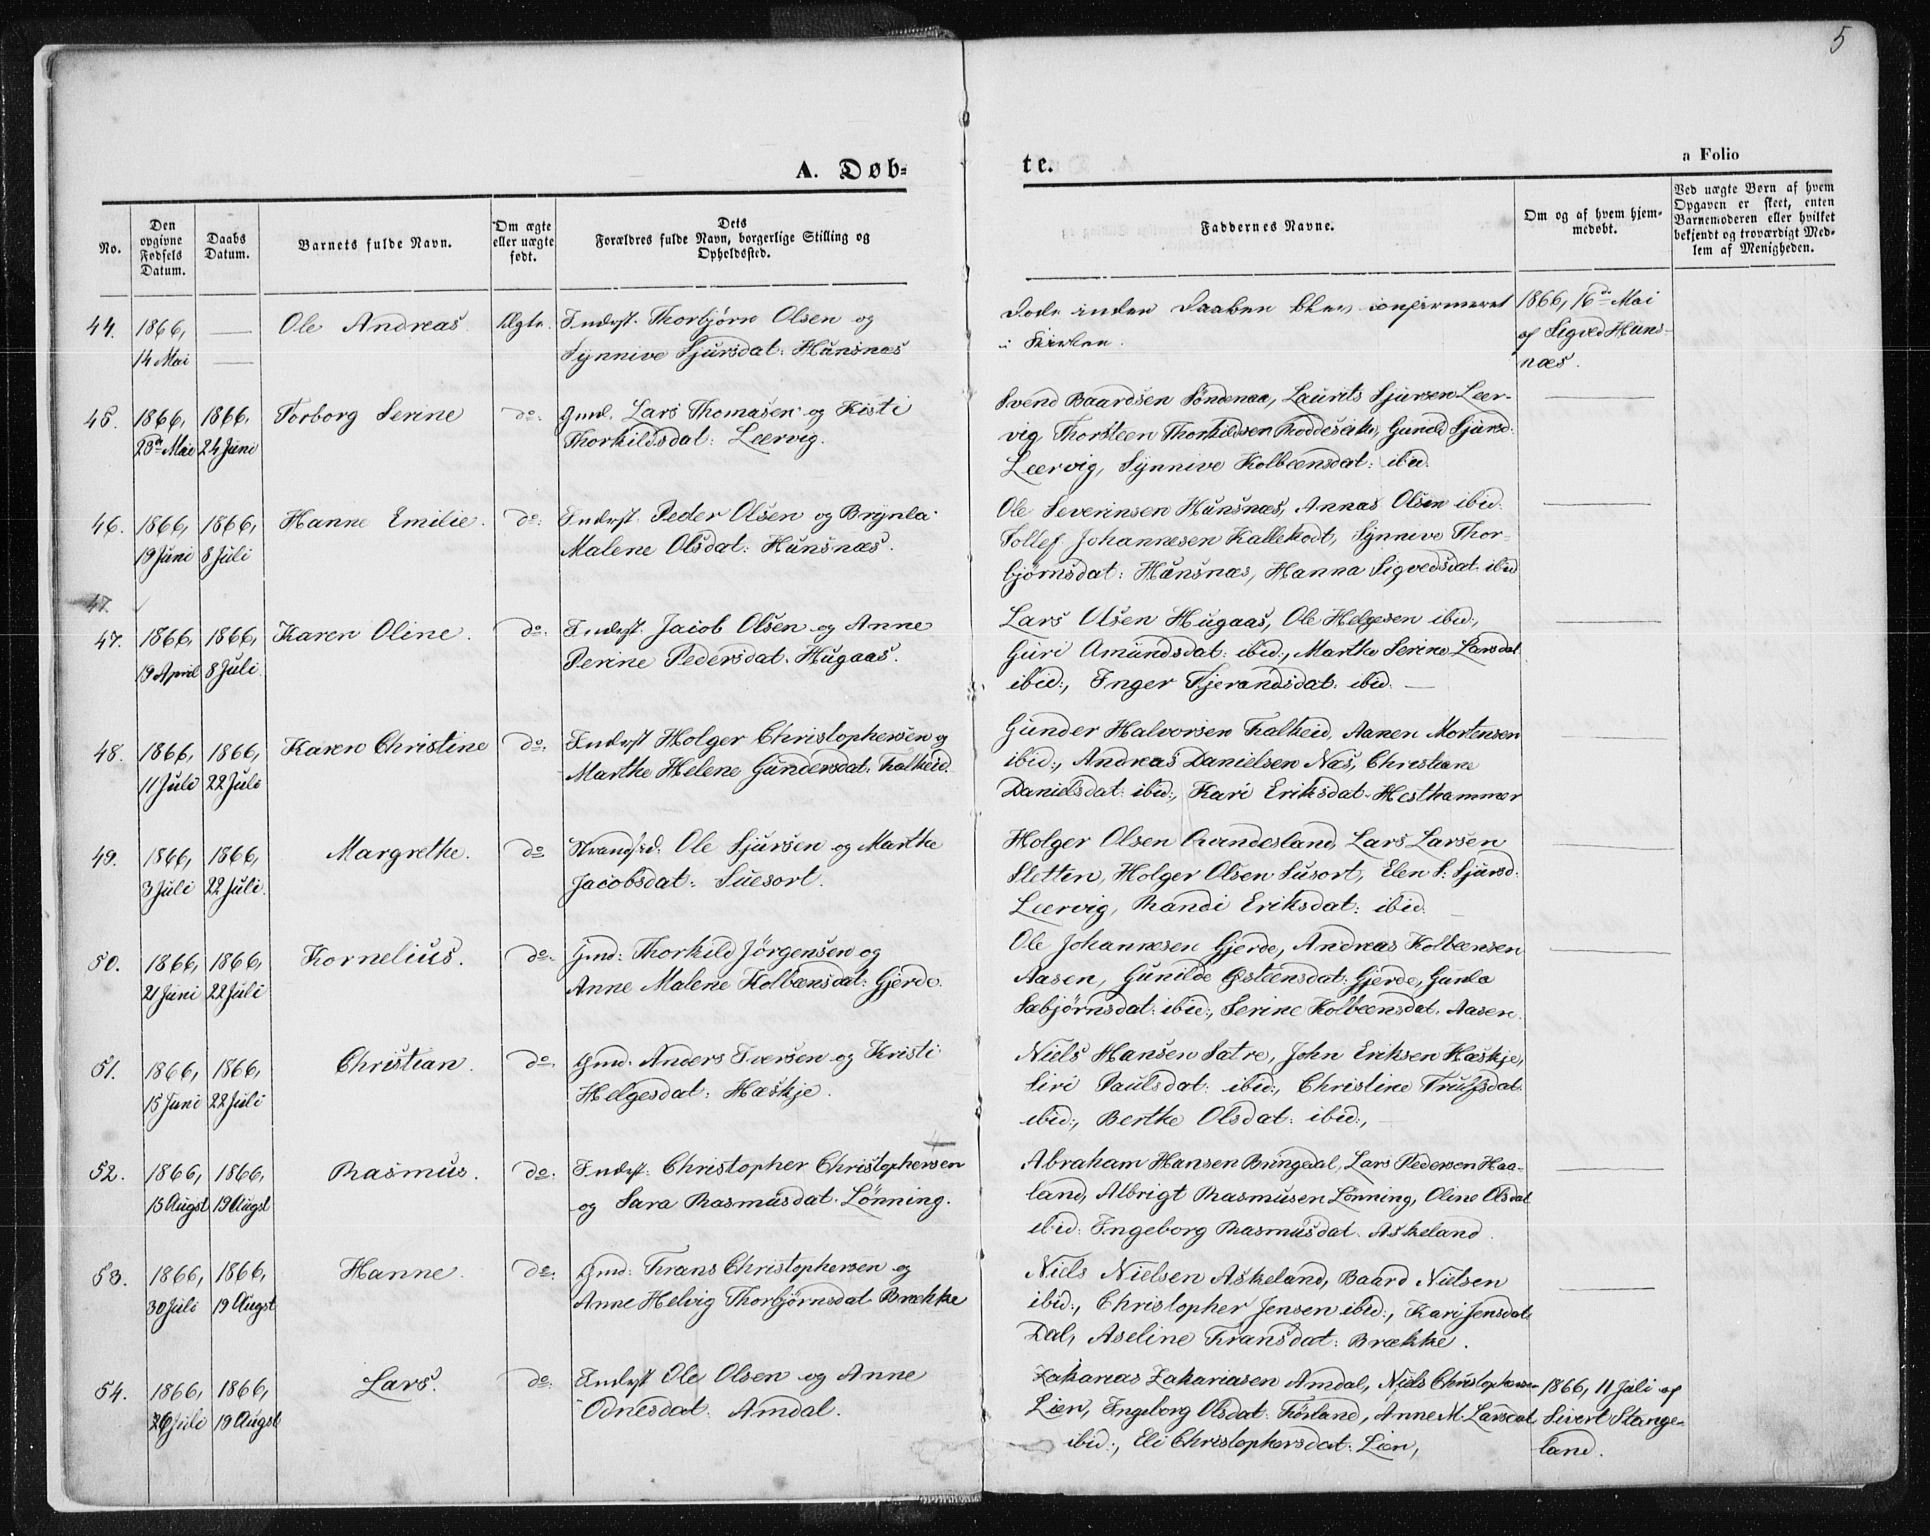 5
A. Døb-
te.
a Folio
No.
Den opgivne Fødsels Datum.
Daabs Datum.
Barnets fulde Navn.
Om ægte eller uægte født.
Dets Forældres fulde Navn, borgerlige Stilling og Opholdssted.
Faddernes Navne.
Om og af hvem hjemmedøbt.
Ved uægte Børn af hvem Opgaven er skeet, enten Barnemoderen eller hvilket bekjendt og troværdigt Medlem af Menigheden.
44. 1866, 14 Mai
Ole Andreas.
Ægte.
Inderst. Thorbjørn Olsen og
Synnive Sjursdat: Hunsnæs
Døde inden Daaben blev confirmeret
i Kirken.
1866, 16de Mai
af Sigved Huns-
næs.
45. 1866, 23de Mai
1866, 24 Juni
Torborg Serine
do:
Gmd. Lars Thomasen og Kisti
Thorkildsdat: Leervig.
Svend Baardsen Søndenaa, Laurits Sjursen Leer-
vig, Thorsteen Thorkildsen, Gunild Sjursd:
Leervig, Synnive Kolbeensdat: ibid.
46. 1866, 19 Juni
1866, 8 Juli
Hanne Emilie.
do:
Inderst. Peder Olsen og Brynla
Malene Olsdat: Hunsnæs.
Ole Severinsen Hunsnæs, Annas Olsen ibid:
Tollef Johannesen Kallekodt, Synnive Thor-
bjørnsdat: Hunsnæs, Hanna Sigvedsdat: ibid
47.
47. 1866, 19 April
1866, 8 Juli
Karen Oline.
do:
Inderst. Jacob Olsen og Anne
Perine Pedersdat. Hugaas.
Lars Olsen Hugaas, Ole Helgesen ibid:,
Guri Amundsdat: ibid:, Marthe Serine Larsdat
ibid:, Inger Tjerandsdat: ibid: —
48. 1866, 11 Juli
1866, 22 Juli
Karen Christine
do:
Inderst Holger Christophersen og
Marthe Helene Gundersdat. Falkeid.
Gunder Halvorsen Falkeid, Aanen Mortensen
ibid:, Andreas Danielsen Næs, Christiane
Danielsdat: ibid:, Kari Eriksdat. Hesthammer
49. 1866, 3 Juli
1866, 22 Juli.
Margrethe.
do
Strands.d: Ole Sjursen og Marthe
Jacobsdat: Suesort.
Holger Olsen Qvandesland, Lars Larsen
Sletten, Holger Olsen Susort, Elen S: Sjursd:
Leervig, Randi Eriksdat: ibid.
50. 1866, 21 Juni
1866, 22 Juli
Kornelius.
do.
Gmd: Thorkild Jörgensen og
Anne Malene Kolbeensdat: Gjerde.
Ole Johannesen Gjerde, Andreas Kolbeensen
Aasen, Gunilde Østeensdat: Gjerde, Gunla
Sæbjörnsdat: ibid:, Serine Kolbeensdat. Aasen.
51. 1866, 15 Juni
1866, 22 Juli
Christian.
do.
Gmd. Anders Iversen og Kristi
Helgesdat: Hæskje.
Niels Hansen Sætre, John Eriksen Hæskje,
Siri Paulsdat: ibid:, Christine Trulsdat:
ibid:, Berthe Olsdat: ibid:,
52. 1866, 15 Augst
1866, 19 Augst
Rasmus.
do:
Inderst: Christopher Christophersen
og Sara Rasmusdat. Lönning.
Abraham Hansen Bringedal, Lars Pedersen Haa-
land, Albrigt Rasmusen Lönning, Oline Olsdat
ibid: Ingeborg Rasmusdat. Askeland.
53. 1866, 30 Juli
1866, 19 Augst
Hanne.
do:
Gmd: Frans Christophersen og
Anne Helvig Thorbjørnsdat Brække
Niels Nielsen Askeland, Baard Nielsen
ibid:, Christopher Jensen ibid:, Kari Jensdat:
Dal, Aseline Fransdat: Brække.
54. 1866, 26 Juli
1866, 19 Augst
Lars.
do:
Inderst Ole Olsen og Anne
Odnesdat. Amdal.
Zakarias Zakariasen Amdal, Niels Christophersen
Lien, Ingeborg Olsdat: Førland, Anne M. Larsdat
ibid:, Eli Christophersdat: Lien,
1866, 11 Juli af
Sivert Stange-
land.